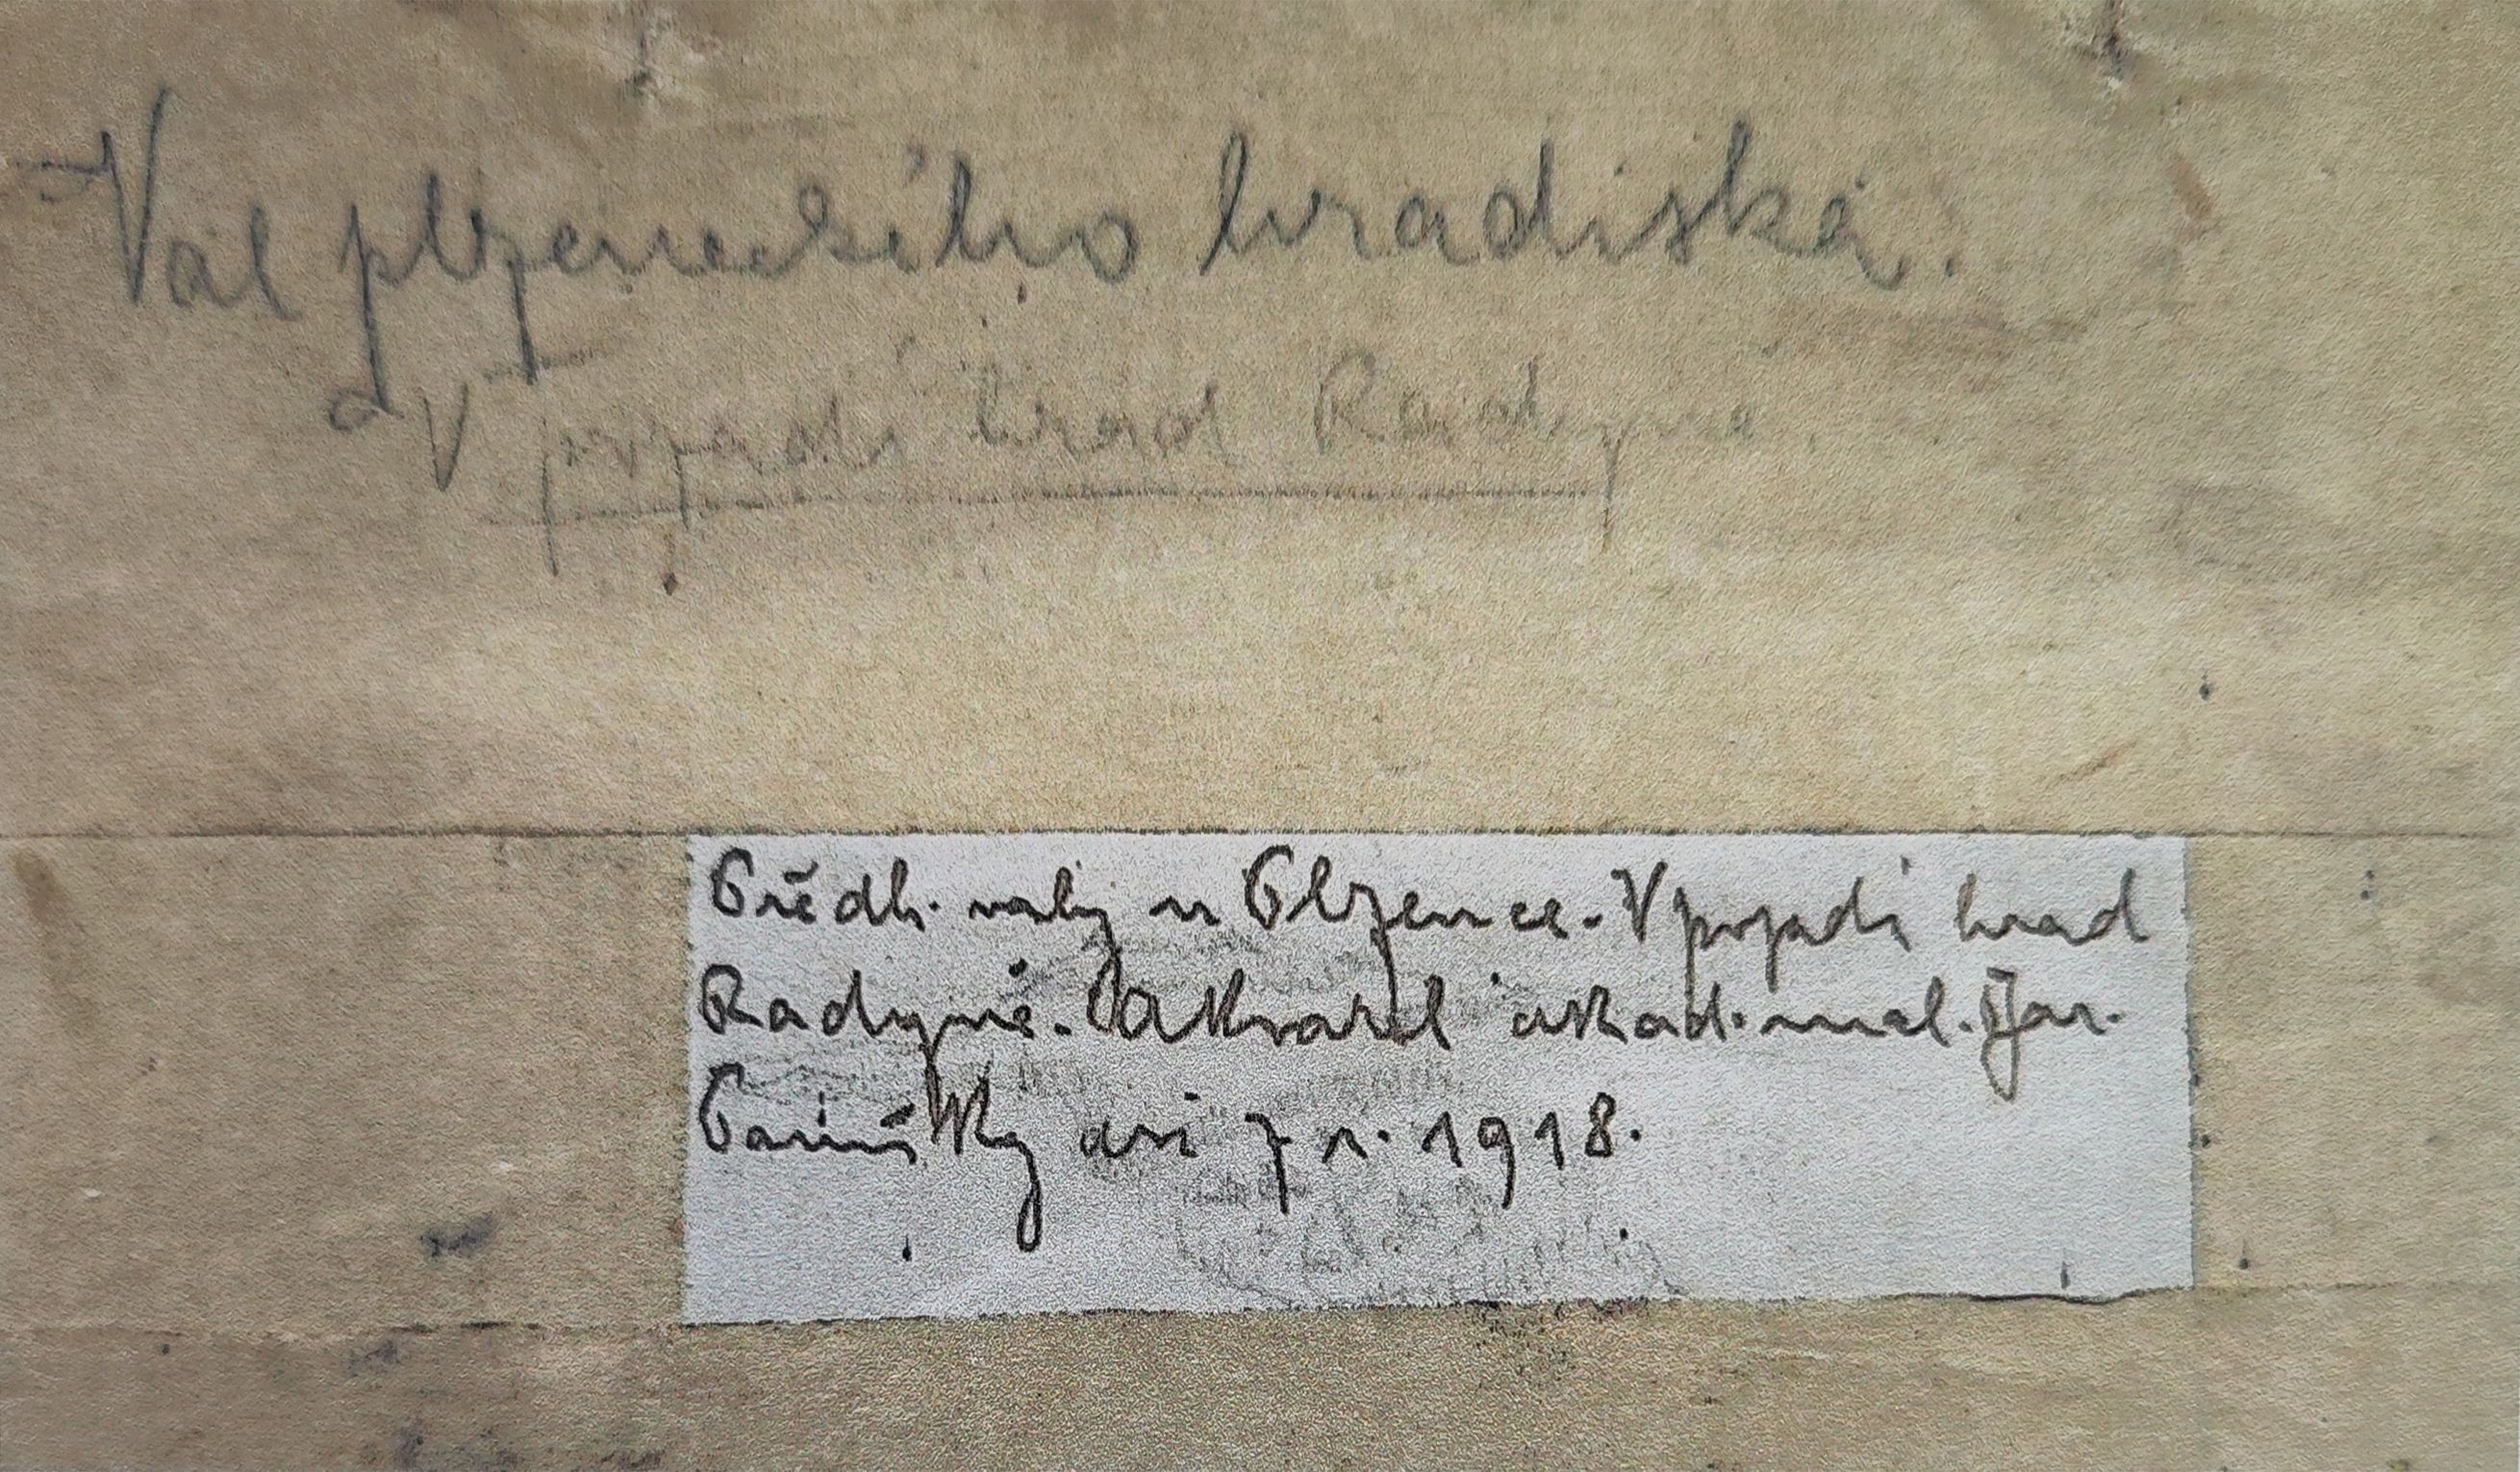 Val plzeneckého hradiska.
V pozadí hrad Radyně.
Předh. valy u Plzence. V pozadí hrad
Radyně. Akvarel akad. mal. Jar.
Panušky asi z r. 1918.